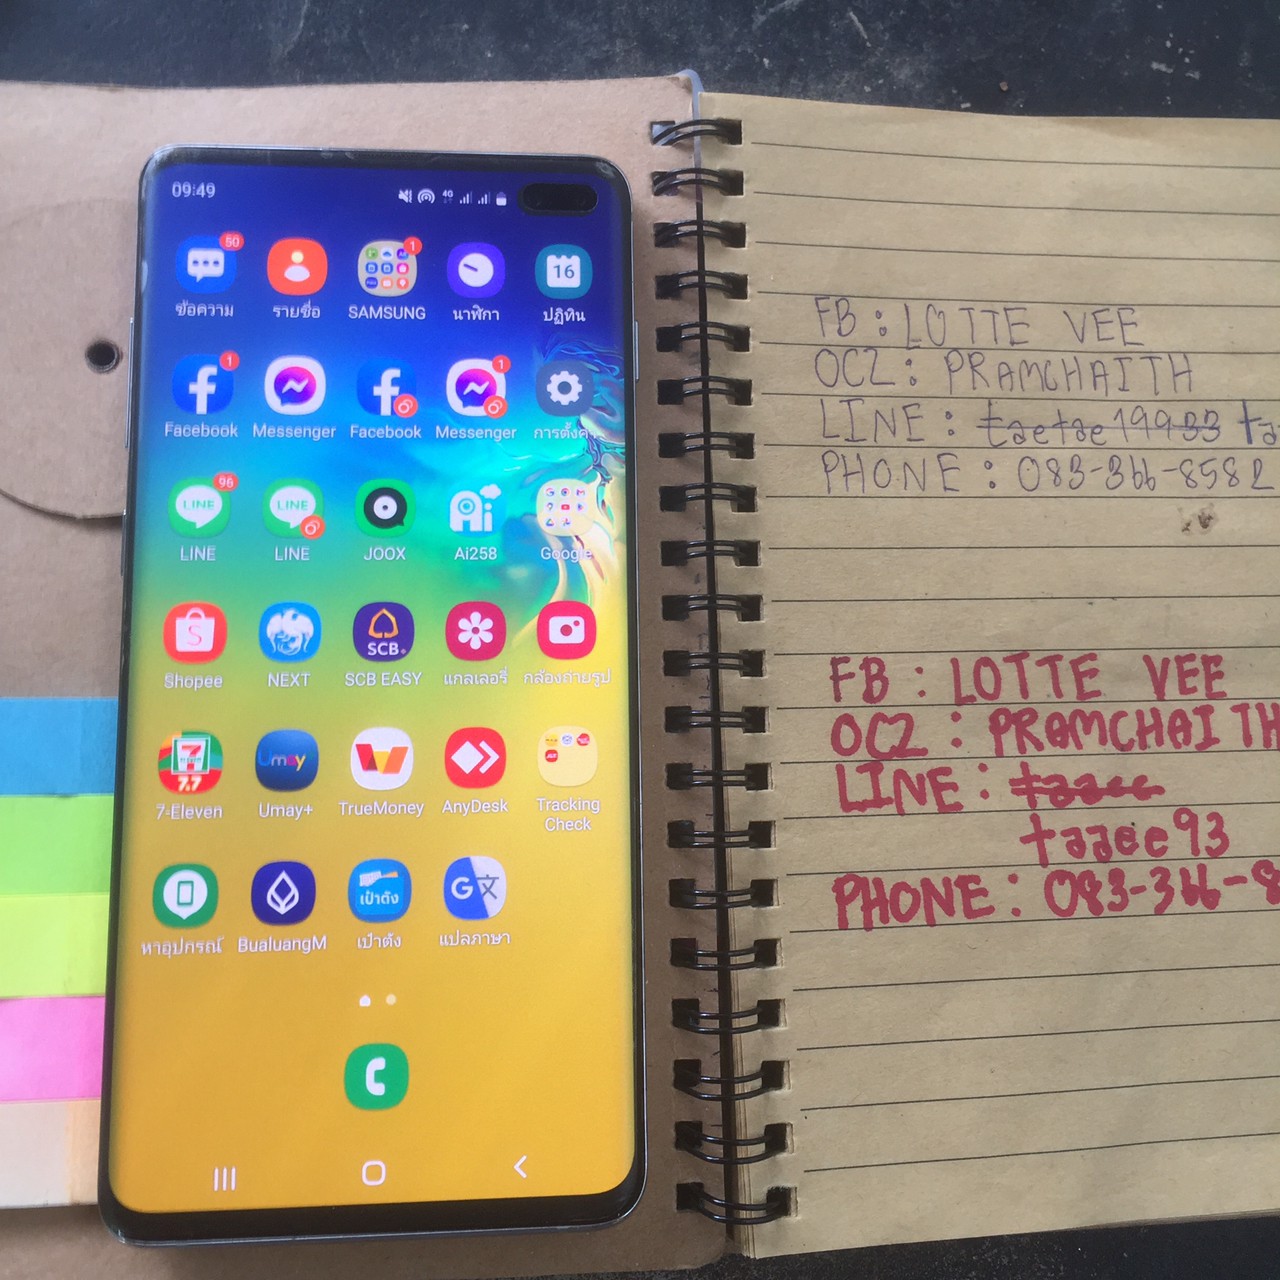 09:49
4G
50
1
16
ข้อความ
รายชื่อ
SAMSUNG
นาฬิกา
ปฏิทิน
1
1
Facebook
Messenger
Facebook
Messenger
การตั้งค่า
96
LINE
LINE
LINE
LINE
JOOX
Ai258
Google
SCB
Shopee
NEXT
SCB EASY
แกลเลอรี่
กล้องถ่ายรูป
7.7
Umay
7-Eleven
Umay+
TrueMoney
AnyDesk
Tracking
Check
เป๋าตัง
หาอุปกรณ์
BualuangM
เป๋าตัง
แปลภาษา
FB : LOTTE VEE
OC2 : PRAMCHAITH
LINE : taetae19933 ta
PHONE : 083-366-8582
FB : LOTTE VEE
OC2 : PRAMCHAITH
LINE :
taaee93
PHONE : 083-366-8